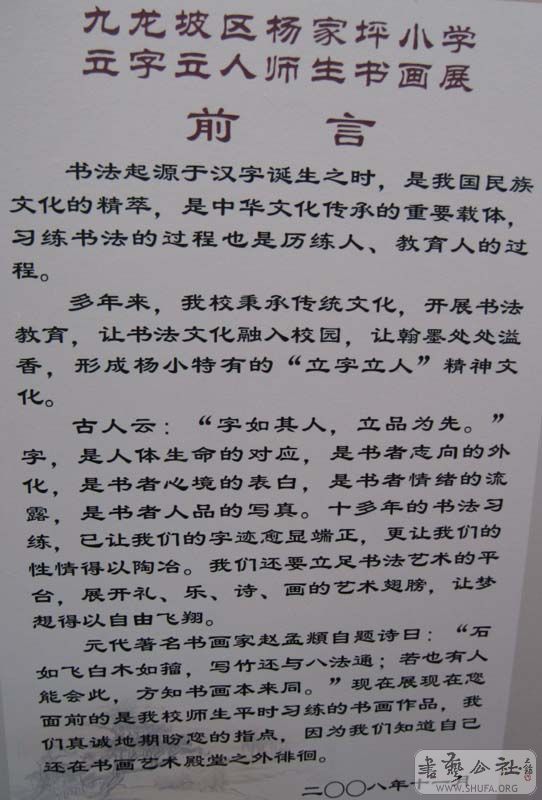 九龙坡区杨家坪小学
立字立人师生书画展
前 言
书法起源于汉字诞生之时，是我国民族
文化的精萃，是中华文化传承的重要载体，
习练书法的过程也是历练人、教育人的过
程。
多年来，我校秉承传统文化，开展书法
教育，让书法文化融入校园，让翰墨处处溢
香，形成杨小特有的“立字立人”精神文
化。
古人云：“字如其人，立品为先。”
字，是人体生命的对应，是书者志向的外
化，是书者心境的表白，是书者情绪的流
露，是书者人品的写真。十多年的书法习
练，已让我们的字迹愈显端正，更让我们的
性情得以陶冶。我们还要立足书法艺术的平
台，展开礼、乐、诗、画的艺术翅膀，让梦
想得以自由飞翔。
元代著名书画家赵孟頫自题诗日：“石
如飞白木如籀，写竹还与八法通；若也有人
能会此，方知书画本来同。”现在展现在您
面前的是我校师生平时习练的书画作品，我
们真诚地期盼您的指点，因为我们知道自己
还在书画艺术殿堂之外徘徊。
二〇〇八年十月
書藝公社
WWW.SHUFA.ORG